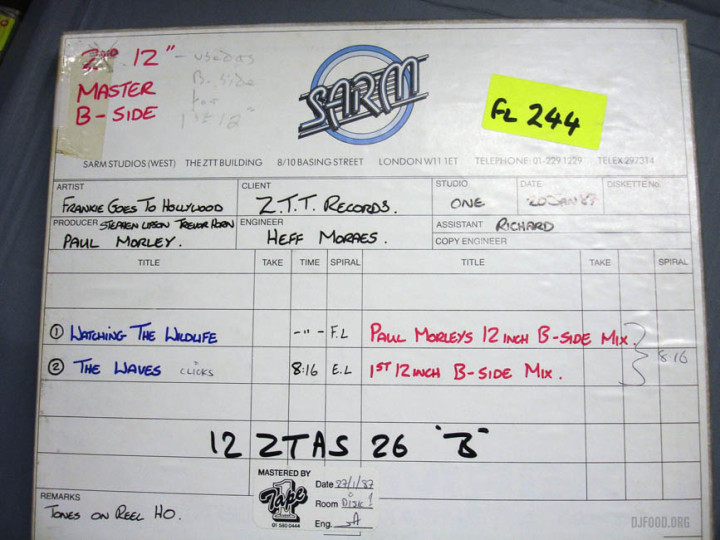 2ND. 12"
MASTER
B-SIDE
- USED AS
B-side
for
1st 12"
SARM
FL 244
SARM STUDIOS (WEST) THE ZTT BUILDING 8/10 BASING STREET LONDON W11 1ET TELEPHONE: 01-229 1229 TELEX 297314
ARTIST
FRANKIE GOES TO HOLLYWOOD
CLIENT
Z.T.T. RECORDS.
STUDIO
ONE
DATE
20 JAN 87
DISKETTE No.
PRODUCER STEPHEN LIPSON TREVOR HORN
PAUL MORLEY.
ENGINEER
HEFF MORAES.
ASSISTANT RICHARD
COPY ENGINEER
TITLE TAKE TIME SPIRAL TITLE TAKE SPIRAL
① WATCHING THE WILDLIFE -"- F.L PAUL MORLEYS 12 INCH B-SIDE MIX
② THE WAVES CLICKS 8:16 E.L 1ST 12 INCH B-SIDE MIX.
8:16
12 ZTAS 26 "B"
REMARKS
TONES ON REEL HO.
MASTERED BY
Tape 1
01 580 0444
Date 27/1/87
Room DISK 1
Eng.
DJFOOD.ORG